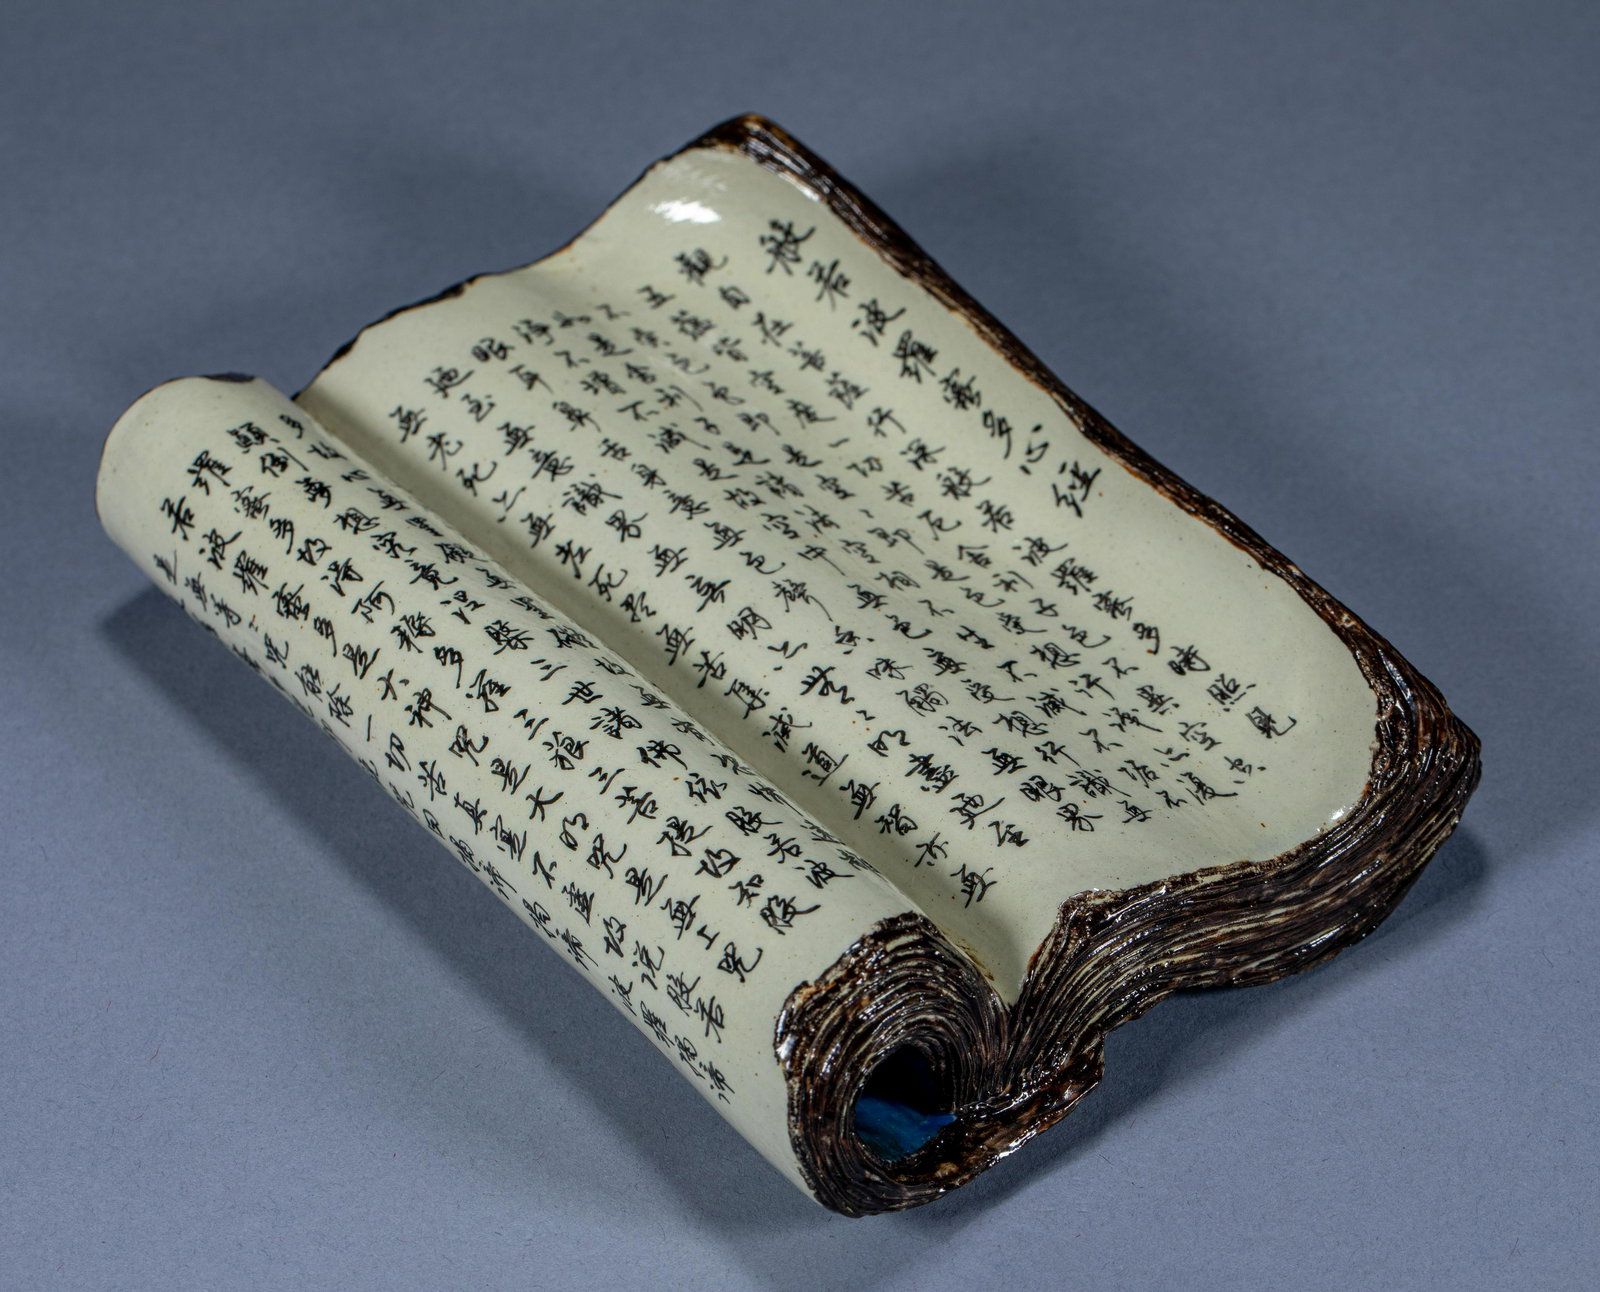 般若波羅蜜多心經
觀自在菩薩行深般若波羅蜜多時照見
五蘊皆空度一切苦厄舍利子色不異空空
不異色色即是空〻即是色受想行識亦復
如是舍利子是諸法空相不生不滅不垢不
淨不增不減是故空中無色無受想行識無
眼耳鼻舌身意無色聲香味觸法無眼界
廼至無意識界無無明亦無〻明盡廼至
無老死亦無老死盡無苦集滅道無智亦無
多故心無罣礙無罣礙故無有恐怖遠離
顛倒夢想究竟涅槃三世諸佛依般若波
羅蜜多故得阿耨多羅三藐三菩提故知般
若波羅蜜多是大神咒是大明咒是無上咒
是無等〻咒能除一切苦真實不虛故說般若
咒即說咒曰揭諦揭諦波羅揭諦